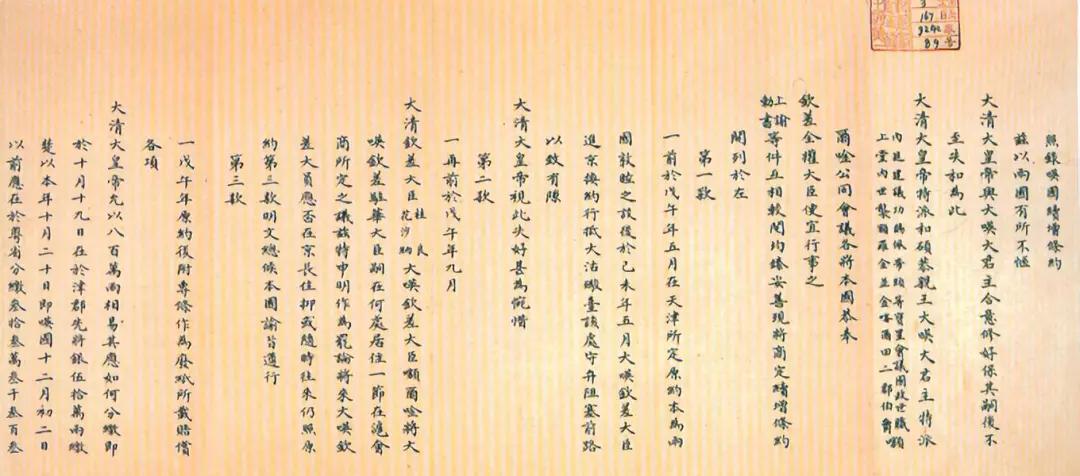 照錄㖊國續增條約
茲以兩國有所不愜
大清大皇帝與大㖊大君主合意修好保其嗣後不
至失和為此
大清大皇帝特派和碩恭親王大㖊大君主特派
內廷建議功賜佩帶頭等寶星會議國政世職額
上堂內世襲額羅金並金喀爾田二郡伯爵
爾唫公同會議各將本國恭奉
欽差全權大臣便宜行事之
上諭
勅書等件互相較閱均臻妥善現將商定續增條約
開列於左
第一款
一前於戊午年五月在天津所定原約本為兩
國敦睦之設後於己未年五月大㖊欽差大臣
進京換約行抵大沽礮臺該處守弁阻塞前路
以致有隙
大清大皇帝視此失好甚為惋惜
第二款
一再前於戊午年九月
大清欽差大臣桂良花沙納大㖊欽差大臣額爾唫將大
㖊欽差駐華大臣嗣在何處居住一節在滬會
商所定之議茲特申明作為罷論將來大㖊欽
差大員應否在京長住抑或隨時往來仍照原
約第三款明文總候本國諭旨遵行
第三款
一戊午年原約後附專條作為廢紙所載賠償
各項
大清大皇帝允以八百萬兩相易其應如何分繳即
於十月十九日在於津郡先將銀伍拾萬兩繳
楚以本年十月二十日即㖊國十二月初二日
以前應在於粵省分繳叁拾叁萬叁千叁百叁
3
167
9242
89